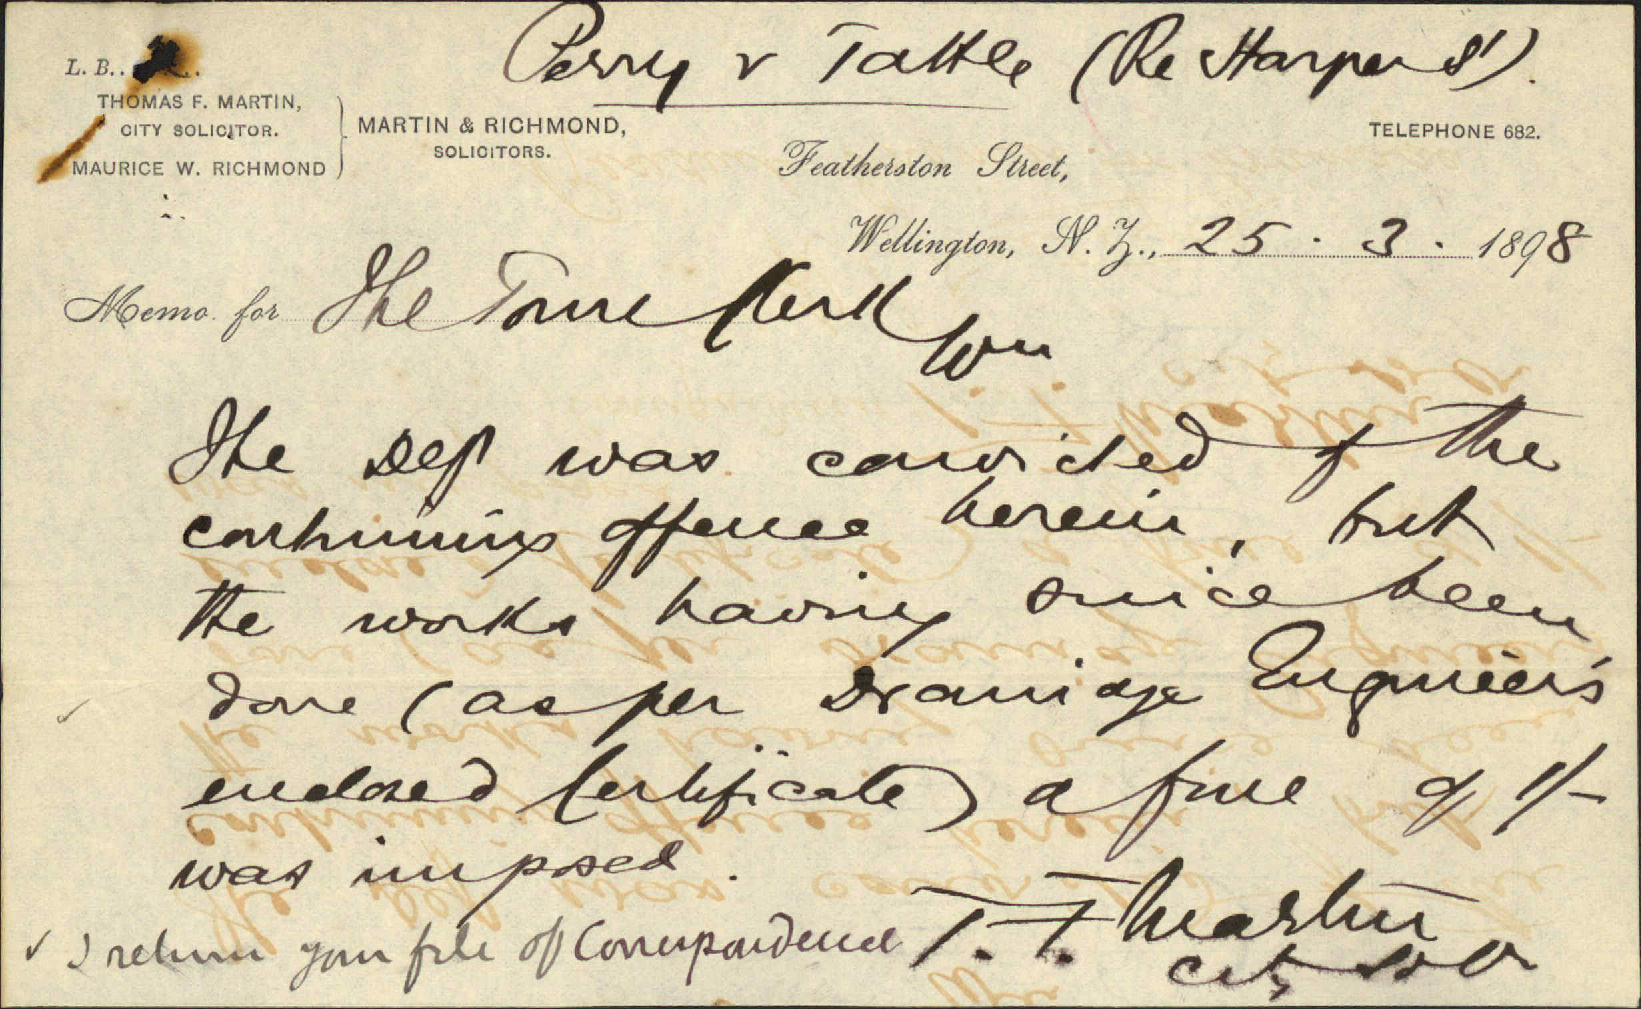 Perry v Tattle (Re Harper St).
L. B..
THOMAS F. MARTIN,
CITY SOLICITOR.
MAURICE W. RICHMOND
MARTIN & RICHMOND,
SOLICITORS.
TELEPHONE 682.
Featherston Street,
Wellington, N. Z., 25 . 3 . 1898
Memo. for The Town Clerk
Wn
The Deft was convicted of the
continuing offence herein, but
the works having since been
done (as per Drainage Engineer's
enclosed Certificate) a fine of 1/-
was imposed.
I return your file of Correspondence
T. F. Martin
City Solr